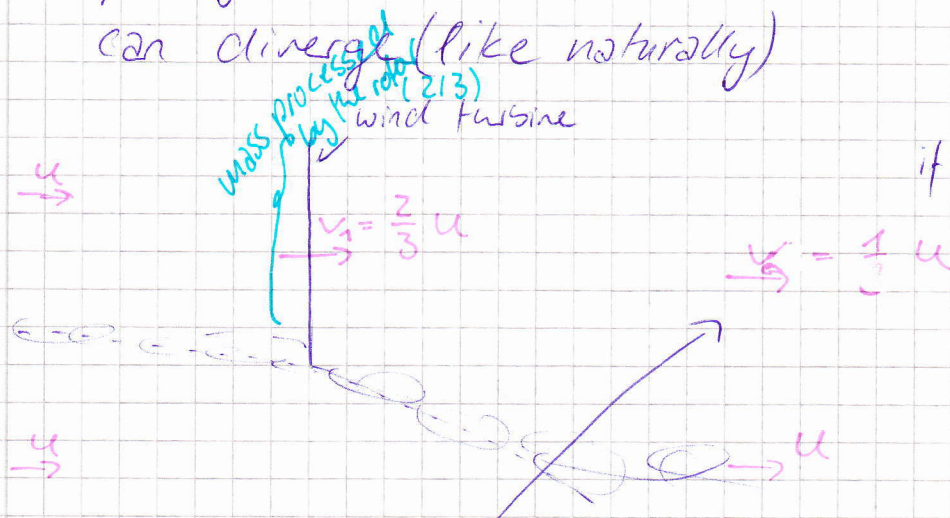 can diverge (like naturally)
mass processed
by the rotor
(2/3)
wind turbine
u
if
v₁ = 2/3 u
= 1/3 u
u
u